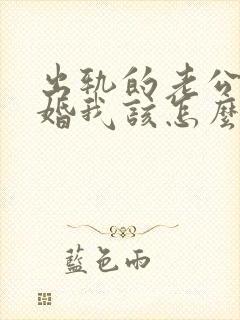 出軌的老公
婚我該怎麼
藍色雨